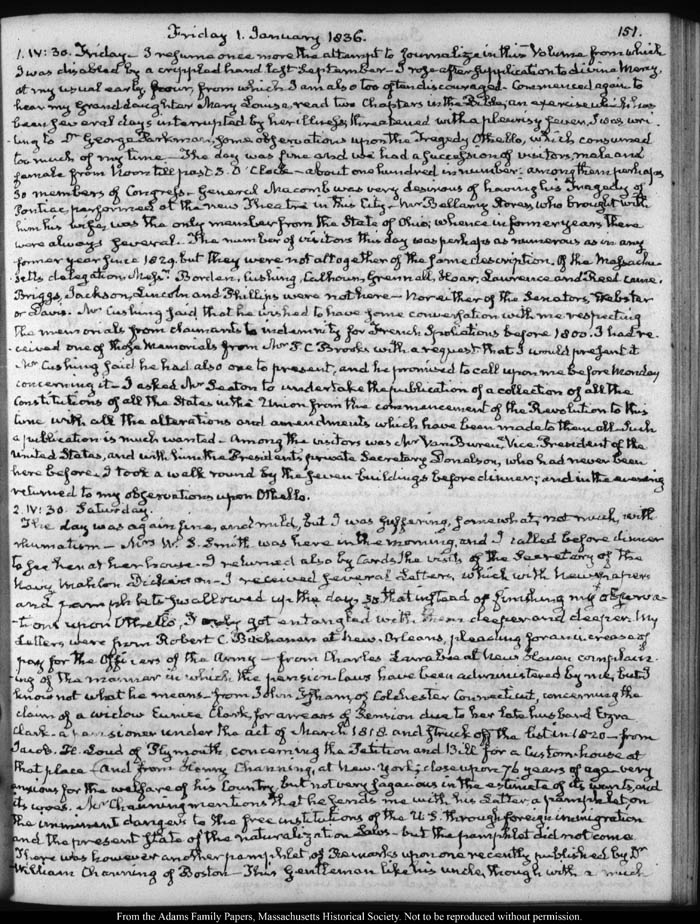 Friday 1. January 1836.
151.
1. IV: 30. Friday - I resume once more the attempt to Journalize in this Volume from which
I was disabled by a crippled hand last September - I rose after supplication to divine Mercy,
at my usual early hour, from which I am also too often discouraged. Commenced again to
hear my Granddaughter Mary Louisa, read two Chapters in the Bible, an exercise which has
been several days interrupted by her illness, threatened with a pleurisy fever, I was wri-
ting to Dr George Parkman, some observations upon the Tragedy Othello, which consumed
too much of my time - The day was fine and we had a succession of visitors, male and
female from Noon till past 3. O'Clock - about one hundred in number, among them perhaps
30 members of Congress - General Macomb was very desirous of having his Tragedy of
Pontiac performed at the new Theatre in this City - Mr Bellamy Storer, who brought with
him his wife, was the only member from the State of Ohio; whence in former years there
were always several. The number of visitors this day was perhaps as numerous as in any
former year since 1829. but they were not altogether of the same description. Of the Massachu-
setts delegation Messrs Borden, Cushing, Calhoun, Grennell, Hoar, Lawrence and Reed came.
Briggs, Jackson, Lincoln and Phillips were not here - Nor either of the Senators, Webster
or Davis. Mr Cushing said that he wished to have some conversation with me respecting
the memorials from claimants to indemnity for French Spoliations before 1800. I had re-
ceived one of those Memorials from Mr P C Brooks with a request that I would present it
Mr Cushing said he had also one to present, and he promised to call upon me before Monday
concerning it - I asked Mr Seaton to undertake the publication of a collection of all the
Constitutions of all the States in the Union from the commencement of the Revolution to this
time with all the alterations and amendments which have been made to them all. Such
a publication is much wanted - Among the visitors was Mr Van Buren, Vice President of the
United States, and with him the President's private Secretary Donelson, who had never been
here before. I took a walk round by the seven buildings before dinner; and in the evening
returned to my observations upon Othello.
2. IV: 30. Saturday.
The day was again fine, and mild, but I was suffering, somewhat, not much, with
rhumatism - Mrs W. S. Smith was here in the morning, and I called before dinner
to see her at her house. I returned also by Cards, the visits of the Secretary of the
Navy Mahlon Dickerson - I received several Letters, which with Newspapers
and pamphlets swallowed up the day, so that instead of finishing my observa-
tions upon Othello, I only got entangled with them deeper and deeper. My
Letters were from Robert C. Buchanan at New-Orleans, pleading for an increase of
pay for the Officers of the Army - from Charles Larrabee at New Haven complain-
ing of the manner in which the pension laws have been administered by me, but I
know not what he means - from John Isham, of Colchester Connecticut, concerning the
claim of a widow Eunice Clark, for arrears of Pension due to her late husband Ezra
Clark - a Pensioner under the act of March 1818. and struck off the list in 1820 - from
Jacob H. Loud of Plymouth, concerning the Petition and Bill for a Custom-house at
that place - And from Henry Channing, at New York; close upon 76 years of age - very
anxious for the welfare of his Country, but not very sagacious in the estimate of its wants, and
its woes. Mr Channing mentions that he sends me with his Letter a pamphlet on
the imminent dangers to the free institutions of the U.S. through foreign immigration
and the present State of the naturalization Laws - but the pamphlet did not come
There was however another pamphlet of Remarks upon one recently published by Dr
William Channing of Boston - This Gentleman like his uncle, though with a much
From the Adams Family Papers, Massachusetts Historical Society. Not to be reproduced without permission.